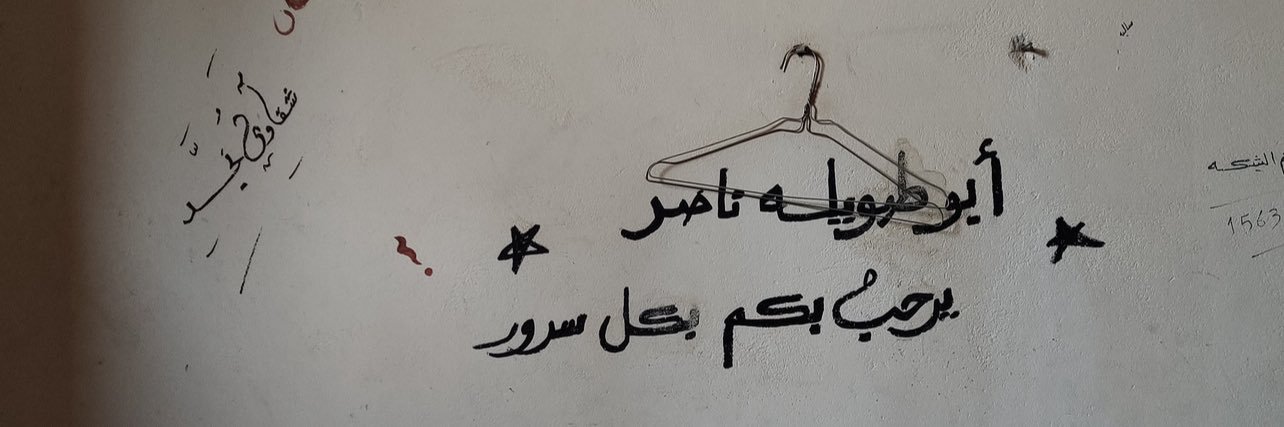 أبو طويله ناصر
يرحبُ بكم بكل سرور
شقاوي
الشبكه
1563